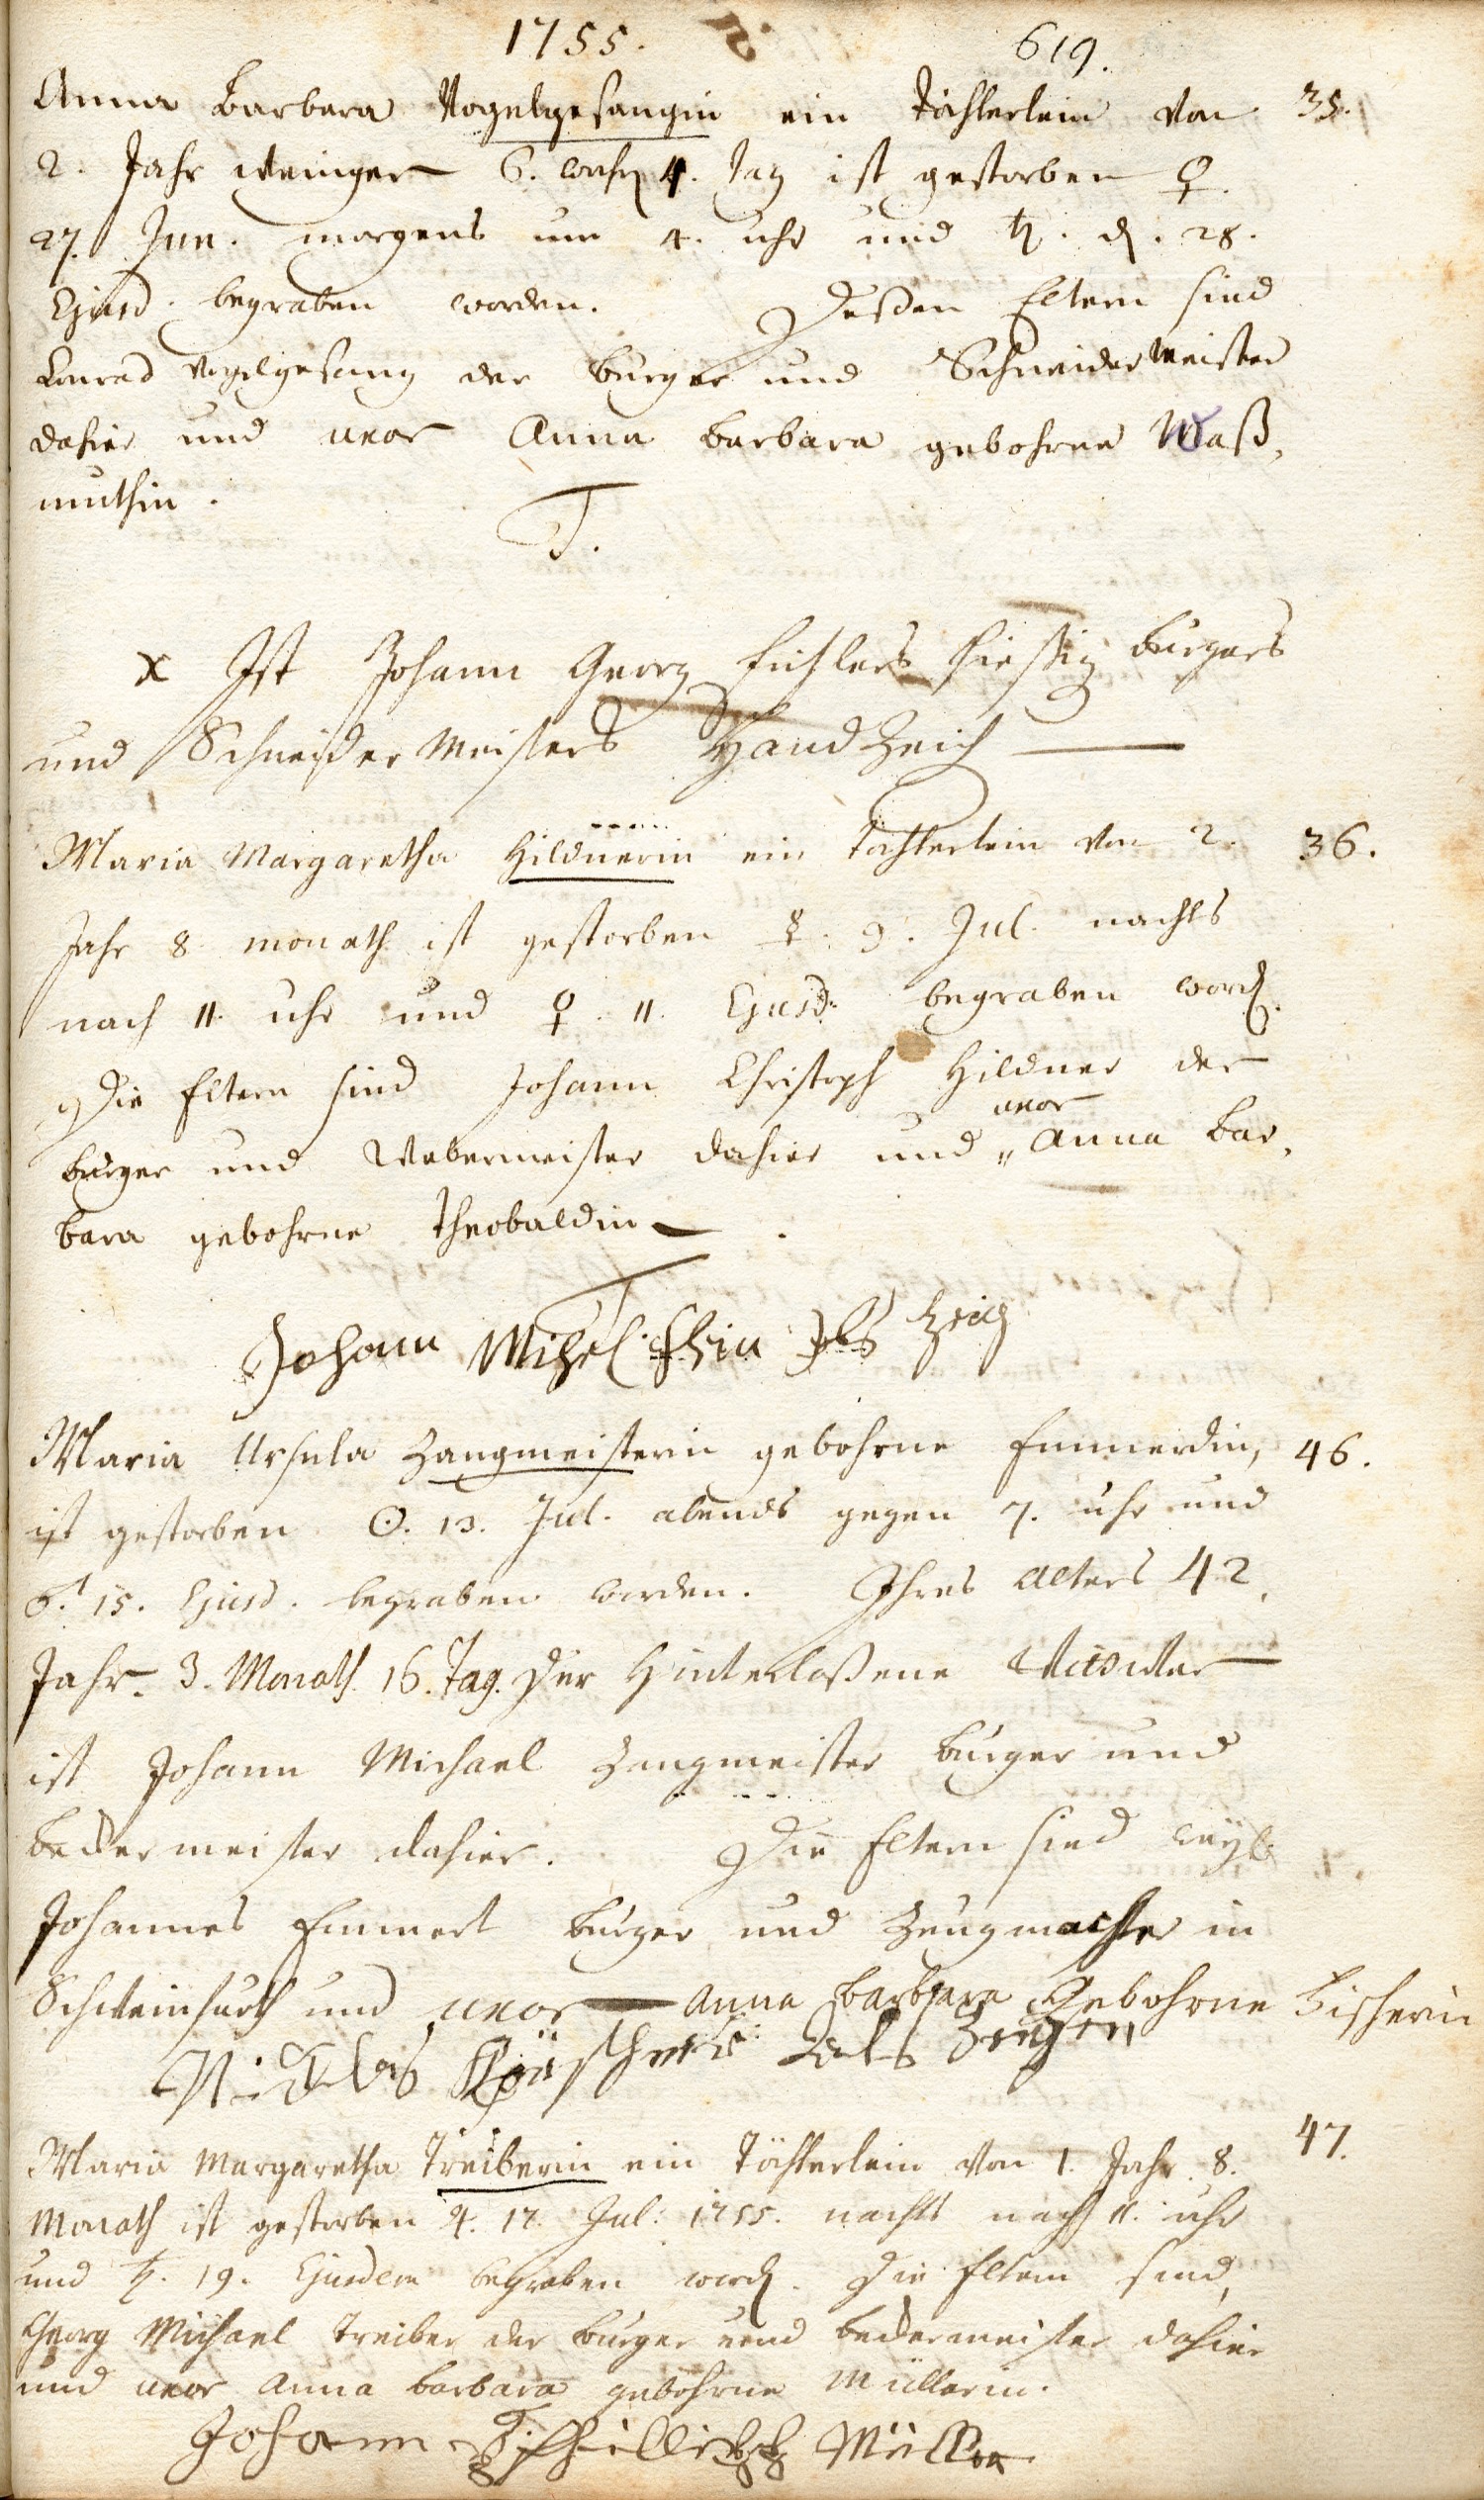 1755. 619.
Anna Barbara Vogelgesangin ein Töchterlein von 35.
2. Jahr weniger 6. woch 4. Tag ist gestorben ♀.
27. Jun. morgens um 4. uhr und ♄. d. 28.
Ejusd. begraben worden. Deßen Eltern sind
Conrad Vogelgesang der burger und Schneider Meister
dahier und uxor Anna Barbara gebohrne Waß,
muthin.
T.
x Ist Johann Georg hießig burgers
und Schneider Meisters Hand Zeich
Maria Margaretha Hildnerin ein Töchterlein von 2. 36.
Jahr 8 monath ist gestorben ☿. 9. Jul. nachts
nach 11. uhr und ♀. 11. Ejusd. begraben word.
Die Eltern sind Johann Christoph Hildner der
uxor
burger und Webermeister dahier und „ Anna Bar,
bara gebohrne Theobaldin.
T
Johann Mihel als Zeig
Maria Ursula Zangmeisterin gebohrne Emmerdin, 46.
ist gestorben ☉. 13. Jul. abends gegen 7. uhr und
♂. 15. Ejusd. begraben worden. Ihres Alters 42,
Jahr. 3. Monath. 16. Tag. Der Hinterlaßene Wittwer
ist Johann Michael Zangmeister burger und
beckermeister dahier. Die Eltern sind weyl.
Johannes Emmert burger und Zeugmacher in
Schweinfurth und uxor Anna Barbara Gebohrne Fischerin
Nicklas als Zeugen
Maria Margaretha Treiberin ein Töchterlein von 1. Jahr. 8. 47.
Monath ist gestorben ♃. 17. Jul: 1755. nachts nach 11. uhr
und ♄. 19. Ejusdem begraben word. Die Eltern sind,
Georg Michael Treiber der burger und beckermeister dahier
und uxor Anna Barbara gebohrne Müllerin.
T.
Johann Müller